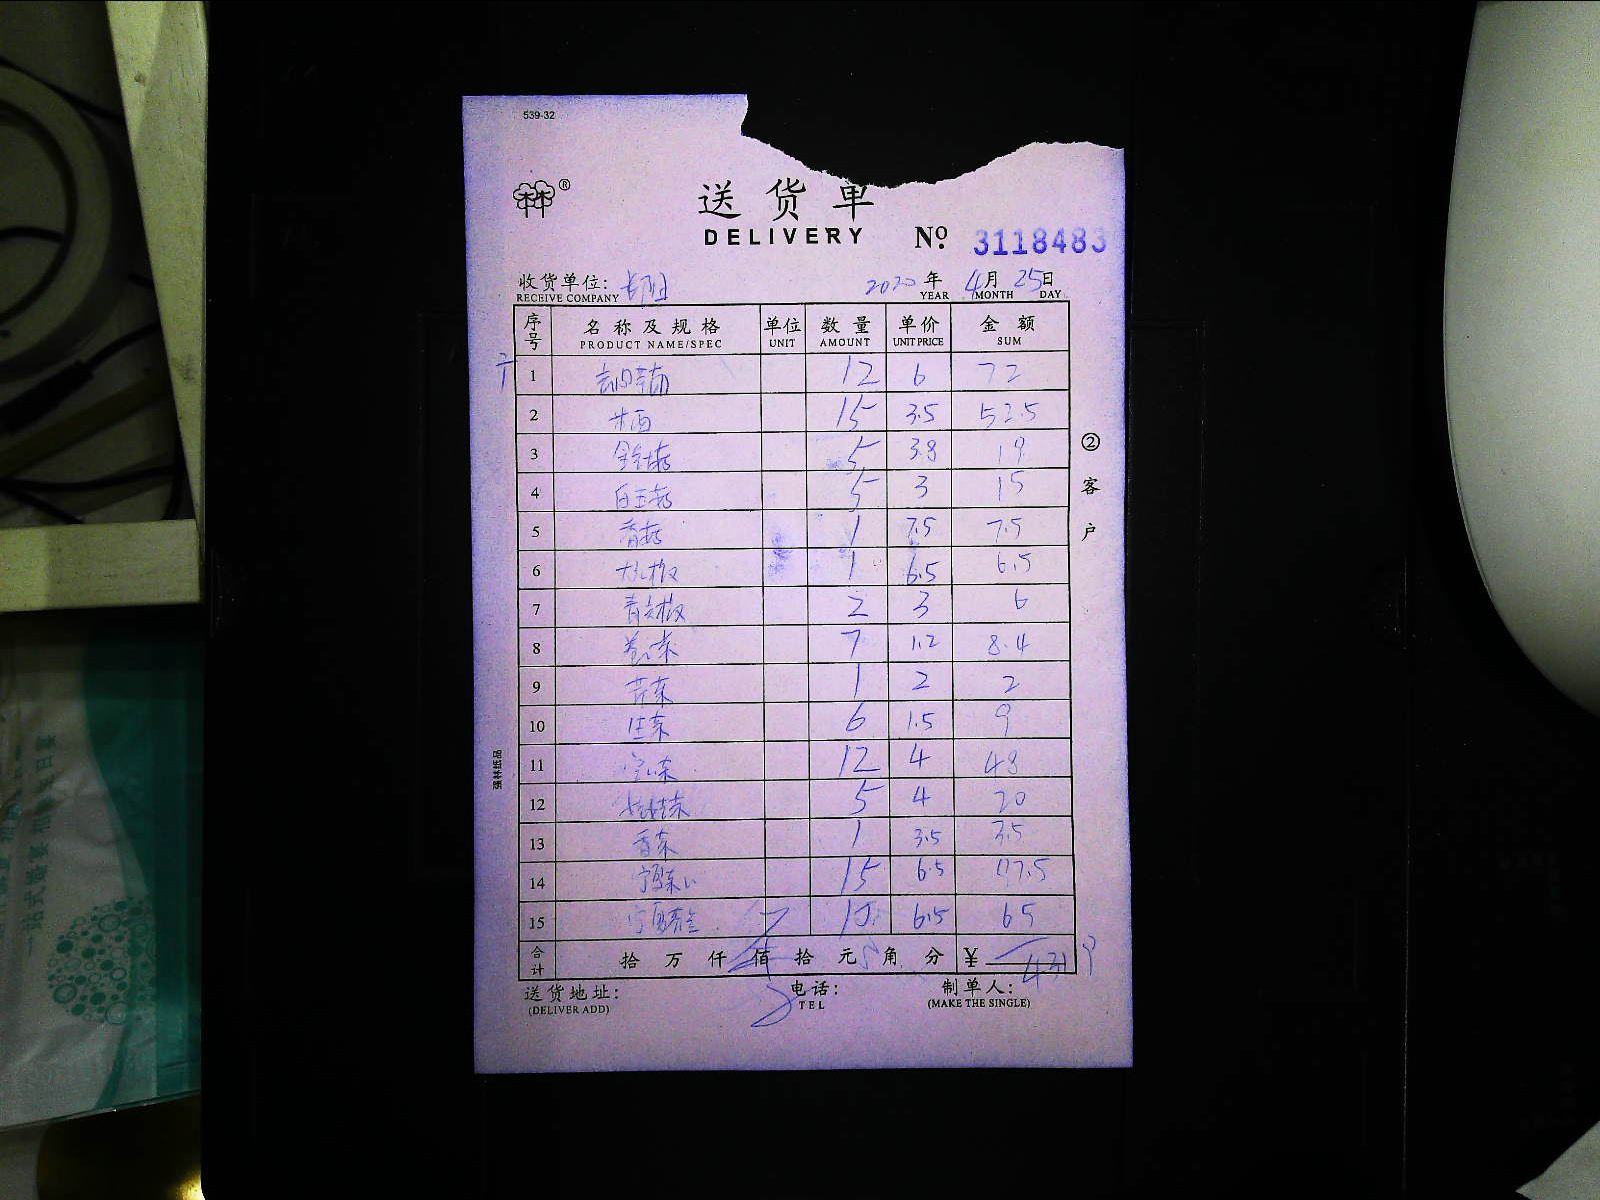 539-32
®
送货单
DELIVERY No. 3118483
收货单位: 2020年4月25日
RECEIVE COMPANY YEAR MONTH DAY
序号 名称及规格 单位 数量 单价 金额
PRODUCT NAME/SPEC UNIT AMOUNT UNIT PRICE SUM
1 12 6 72
2 15 3.5 52.5
3 5 3.8 19
4 白玉菇 5 3 15
5 香菇 1 7.5 7.5
6 1 6.5 6.5
7 青尖椒 2 3 6
8 卷心菜 7 1.2 8.4
9 芹菜 1 2 2
10 生菜 6 1.5 9
11 空心菜 12 4 48
12 娃娃菜 5 4 20
13 香菜 1 3.5 3.5
14 宁夏菜心 15 6.5 97.5
15 10 6.5 65
合计 拾 万 仟 佰 拾 元 角 分 ¥
送货地址: 电话: 制单人:
(DELIVER ADD) TEL (MAKE THE SINGLE)
②客户
强林纸品
一站式婚宴